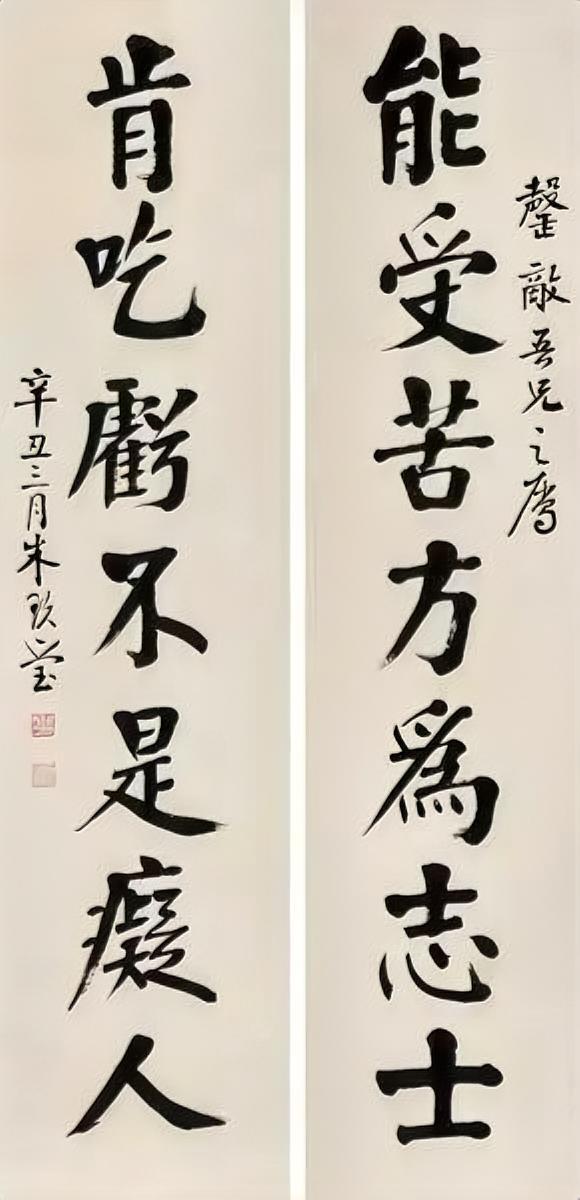 能受苦方為志士
敵吾兄之属
肯吃虧不是癡人
辛丑三月朱玖瑩